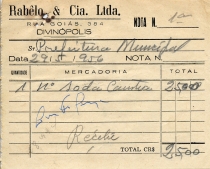 Rabêlo & Cia. Ltda.
RUA GOIÁS, 384
DIVINÓPOLIS
NOTA N.
Sr. Prefeitura Municipal
Data 29 1956 NOTA N.
QUANTIDADE MERCADORIA TOTAL
1 Soda Caustica 25,00
Recebi
TOTAL CR$ 25,00